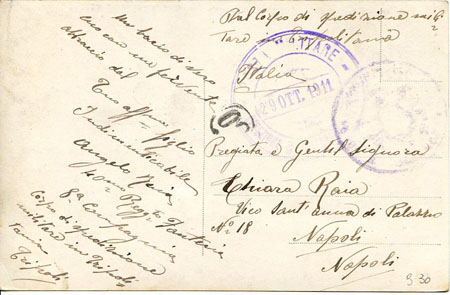 Un bacio di vero
cuore ed un forte
abbraccio del
Tuo aff.mo figlio
Indimenticabile
Angelo Raia
40mo Regg. Fanteria
8a Compagnia
Corpo di spedizione
militare in Tripoli
Tripoli
Dal Corpo di spedizione mili-
tare in Tripolitania
Italia
29 OTT. 1911
Pregiata e Gentil Signora
Chiara Raia
Vico Sant'anna di Palazzo
No 18
Napoli
Napoli
9 30